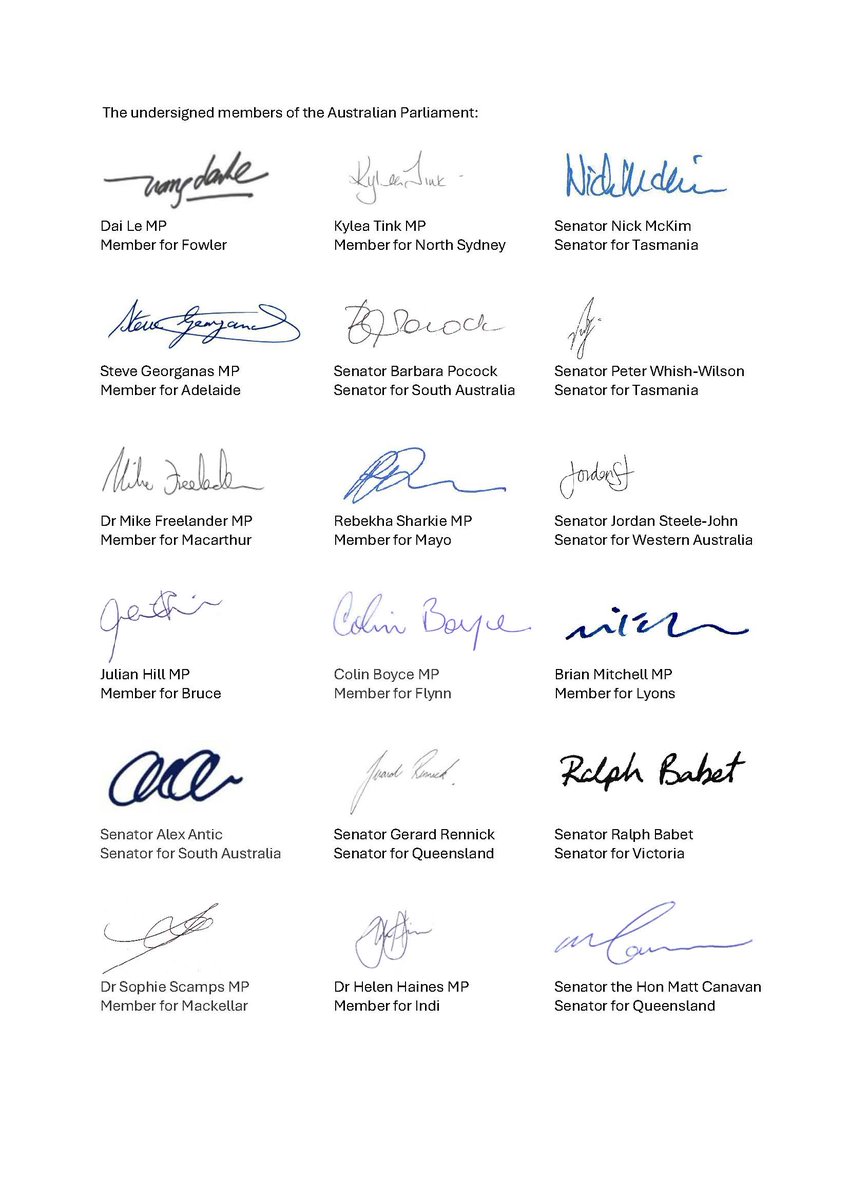 The undersigned members of the Australian Parliament:
Kylea Tink
Nick McKim
Dai Le MP
Member for Fowler
Kylea Tink MP
Member for North Sydney
Senator Nick McKim
Senator for Tasmania
Steve Georganas
B Pocock
Steve Georganas MP
Member for Adelaide
Senator Barbara Pocock
Senator for South Australia
Senator Peter Whish-Wilson
Senator for Tasmania
Mike Freelander
JordonSJ
Dr Mike Freelander MP
Member for Macarthur
Rebekha Sharkie MP
Member for Mayo
Senator Jordan Steele-John
Senator for Western Australia
Colin Boyce
Julian Hill MP
Member for Bruce
Colin Boyce MP
Member for Flynn
Brian Mitchell MP
Member for Lyons
Gerard Rennick
Ralph Babet
Senator Alex Antic
Senator for South Australia
Senator Gerard Rennick
Senator for Queensland
Senator Ralph Babet
Senator for Victoria
Dr Sophie Scamps MP
Member for Mackellar
Dr Helen Haines MP
Member for Indi
Senator the Hon Matt Canavan
Senator for Queensland